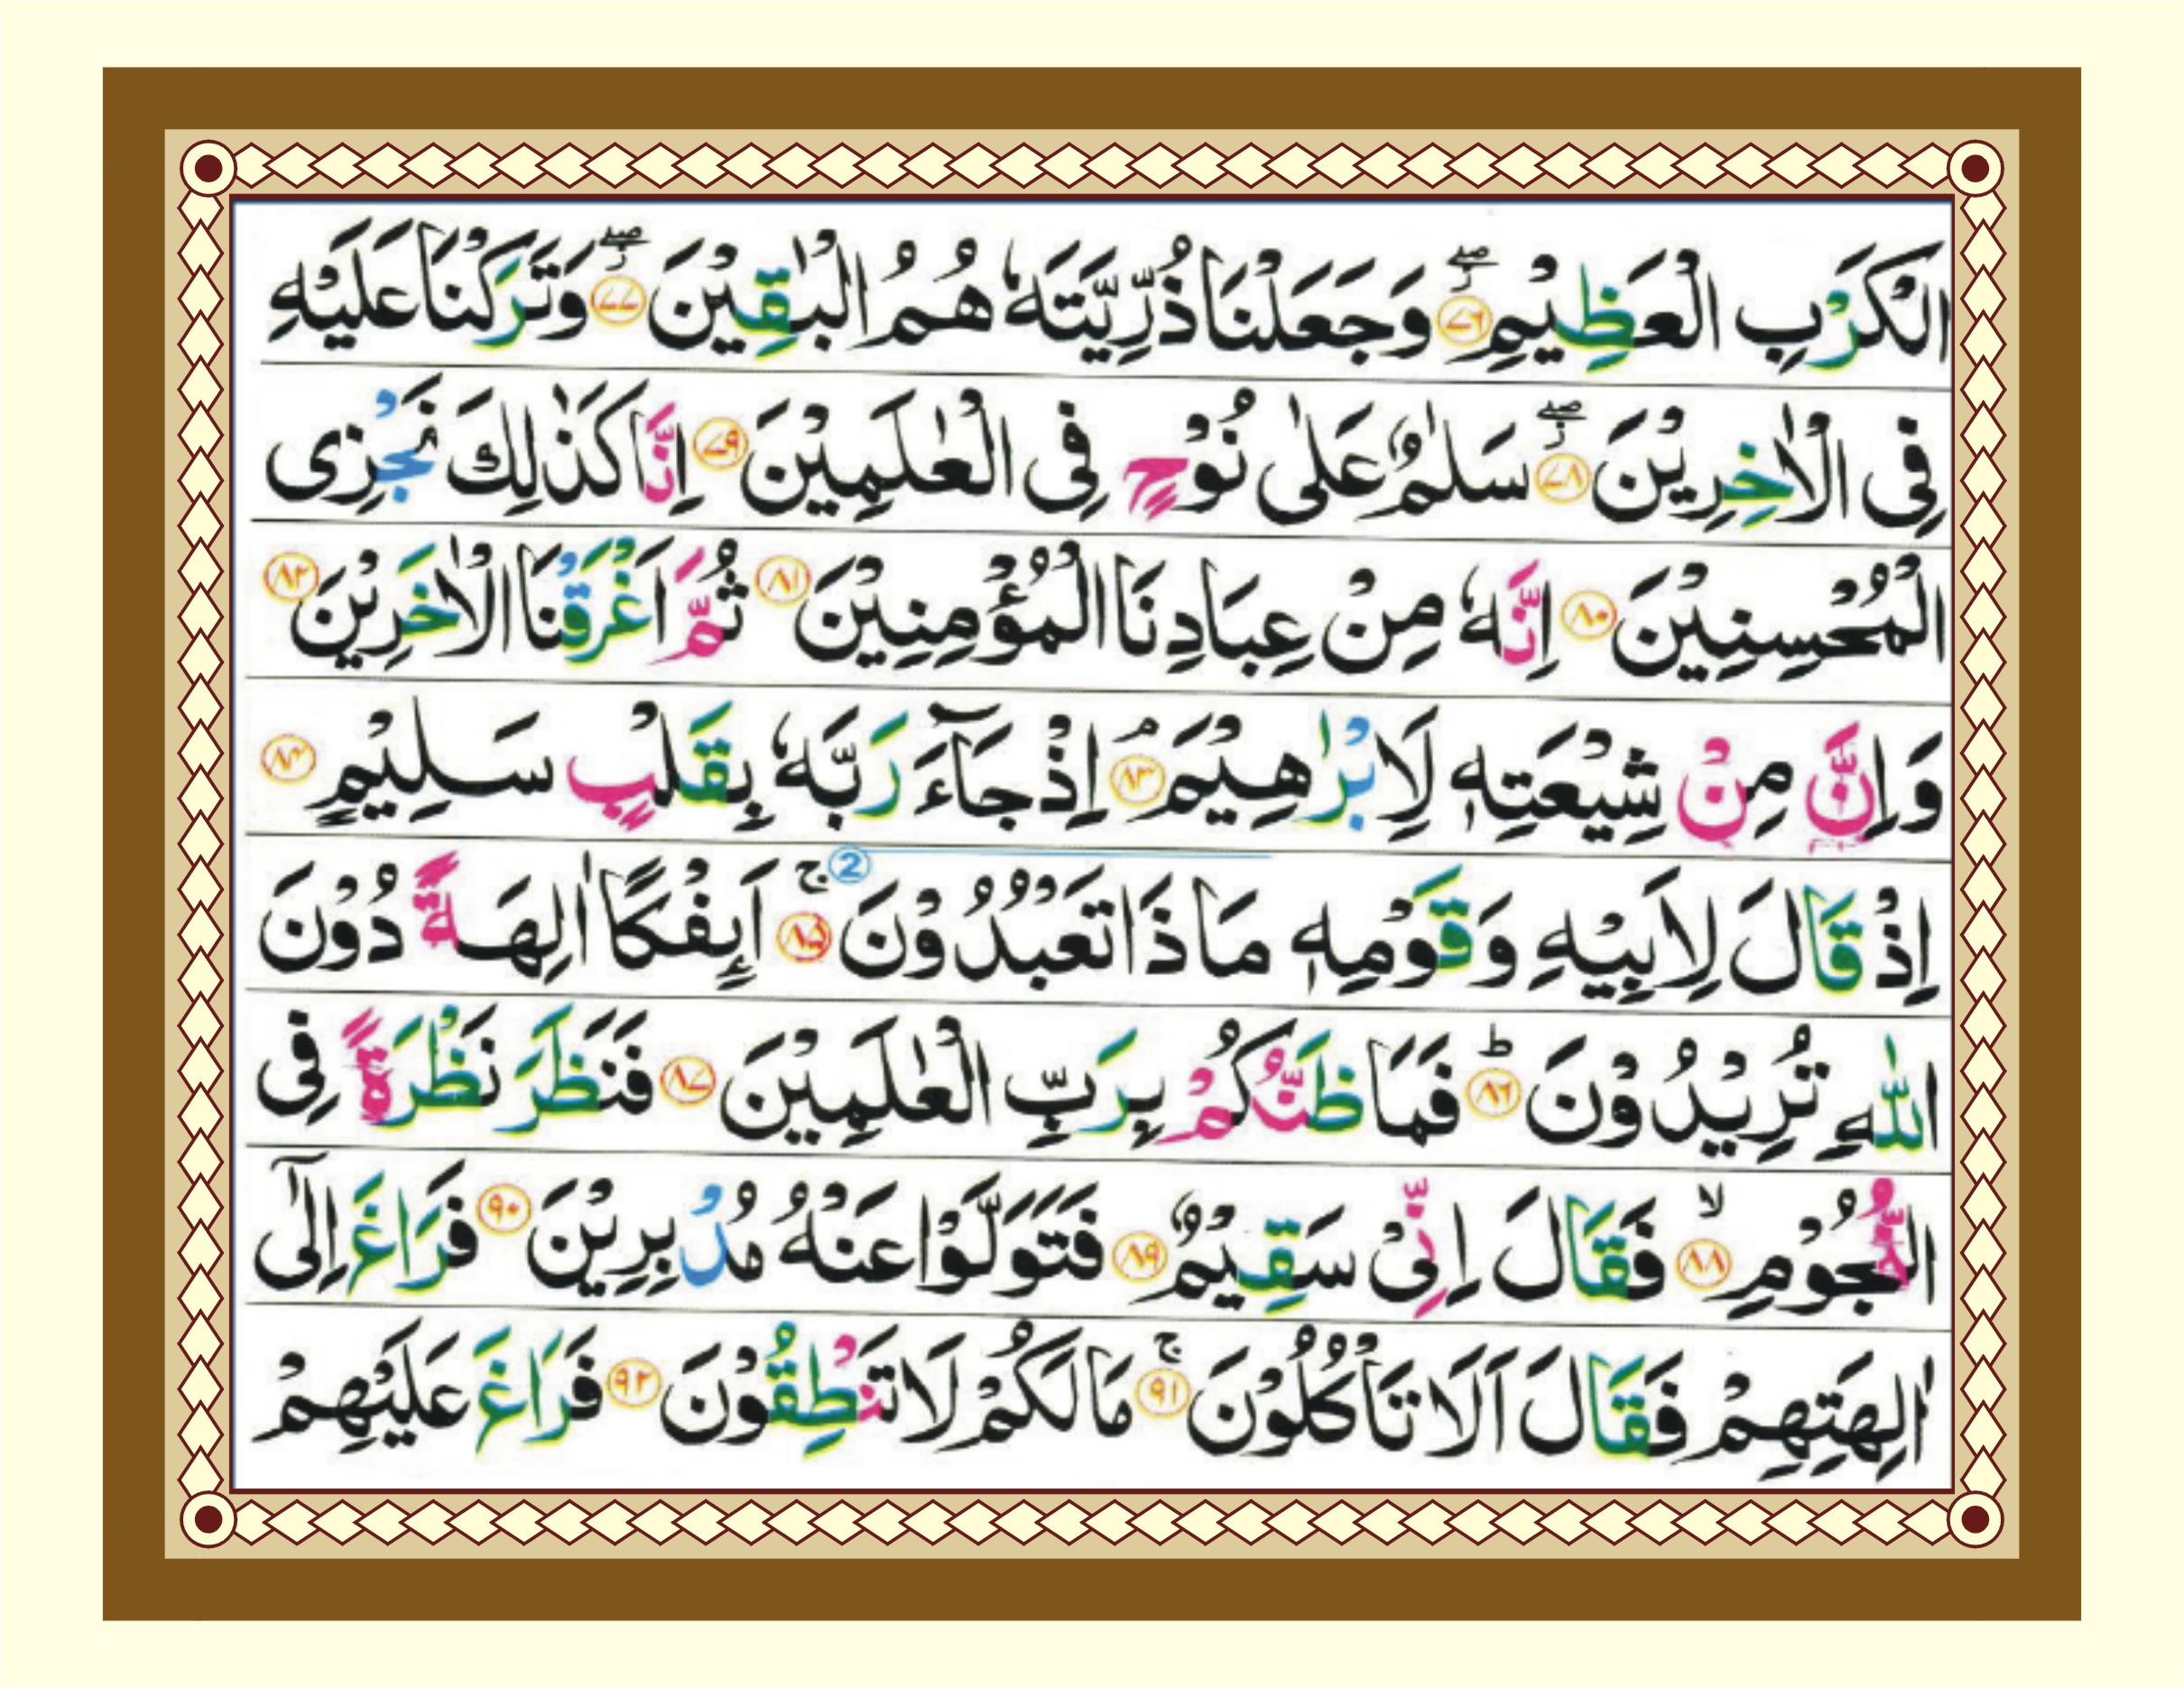 الْكَرْبِ الْعَظِيْمِ ۖ۷۶ وَجَعَلْنَا ذُرِّيَّتَهٗ هُمُ الْبٰقِيْنَ ۖ۷۷ وَتَرَكْنَا عَلَيْهِ
فِى الْاٰخِرِيْنَ ۖ۷۸ سَلٰمٌ عَلٰى نُوْحٍ فِى الْعٰلَمِيْنَ ۷۹ اِنَّا كَذٰلِكَ نَجْزِى
الْمُحْسِنِيْنَ ۸۰ اِنَّهٗ مِنْ عِبَادِنَا الْمُؤْمِنِيْنَ ۸۱ ثُمَّ اَغْرَقْنَا الْاٰخَرِيْنَ ۸۲
وَاِنَّ مِنْ شِيْعَتِهٖ لَاِبْرٰهِيْمَ ۘ۸۳ اِذْ جَآءَ رَبَّهٗ بِقَلْبٍ سَلِيْمٍ ۸۴
اِذْ قَالَ لِاَبِيْهِ وَقَوْمِهٖ مَاذَا تَعْبُدُوْنَ ۚ۸۵ 2 اَئِفْكًا اٰلِهَةً دُوْنَ
اللّٰهِ تُرِيْدُوْنَ ؕ۸۶ فَمَا ظَنُّكُمْ بِرَبِّ الْعٰلَمِيْنَ ۸۷ فَنَظَرَ نَظْرَةً فِى
النُّجُوْمِ ۙ۸۸ فَقَالَ اِنِّىْ سَقِيْمٌ ۸۹ فَتَوَلَّوْا عَنْهُ مُدْبِرِيْنَ ۹۰ فَرَاغَ اِلٰٓى
اٰلِهَتِهِمْ فَقَالَ اَلَا تَاْكُلُوْنَ ۚ۹۱ مَا لَكُمْ لَا تَنْطِقُوْنَ ۹۲ فَرَاغَ عَلَيْهِمْ